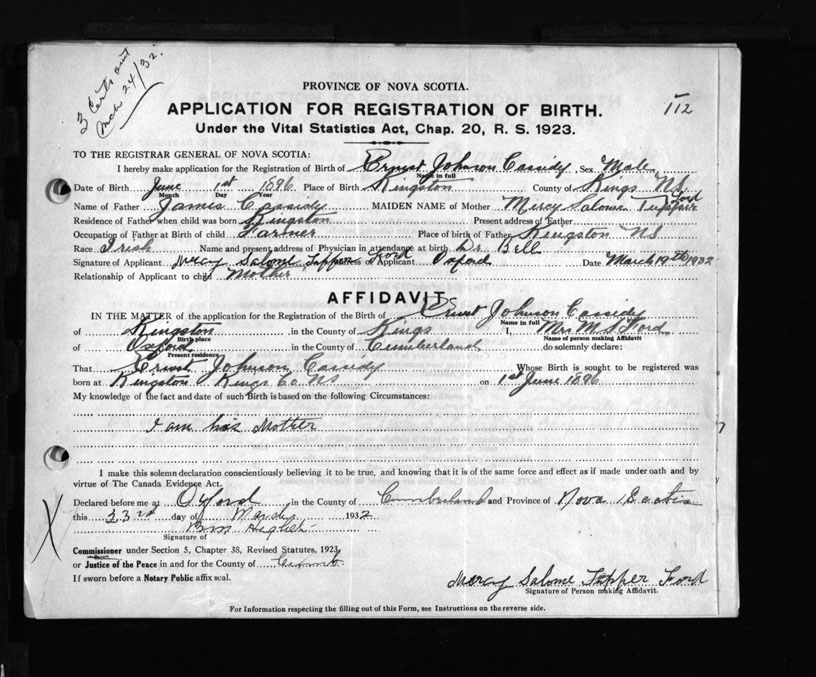 3 Certs out
Mch 24/32.
PROVINCE OF NOVA SCOTIA.
APPLICATION FOR REGISTRATION OF BIRTH.
112
Under the Vital Statistics Act, Chap. 20, R. S. 1923.
TO THE REGISTRAR GENERAL OF NOVA SCOTIA:
I hereby make application for the Registration of Birth of Ernest Johnson Cassidy, Sex Male
Name in full
Date of Birth June 1st 1896 Place of Birth Kingston County of Kings NS
Month Day Year
Name of Father James Cassidy MAIDEN NAME of Mother Mercy Salome Tupper Ford
Residence of Father when child was born Kingston Present address of Father
Occupation of Father at Birth of child Farmer Place of birth of Father Kingston NS
Race Irish Name and present address of Physician in attendance at birth Dr. Bell
Signature of Applicant Mercy Salome Tupper Ford of Applicant Oxford Date March 19th 1932
Relationship of Applicant to child Mother
AFFIDAVIT
IN THE MATTER of the application for the Registration of the Birth of Ernest Johnson Cassidy
Name in full
of Kingston in the County of Kings I, Mrs M. S. Ford
Birth place Name of person making Affidavit
of Oxford in the County of Cumberland do solemnly declare:
Present residence
That Ernest Johnson Cassidy Whose Birth is sought to be registered was
born at Kingston Kings Co NS on 1st June 1896
My knowledge of the fact and date of such Birth is based on the following Circumstances:
I am his Mother
I make this solemn declaration conscientiously believing it to be true, and knowing that it is of the same force and effect as if made under oath and by
virtue of The Canada Evidence Act.
Declared before me at Oxford in the County of Cumberland and Province of Nova Scotia
this 23rd day of March 1932
Signature of
Commissioner under Section 5, Chapter 38, Revised Statutes, 1923,
or Justice of the Peace in and for the County of Cumb.
If sworn before a Notary Public affix seal.
Mercy Salome Tupper Ford
Signature of Person making Affidavit.
For Information respecting the filling out of this Form, see Instructions on the reverse side.